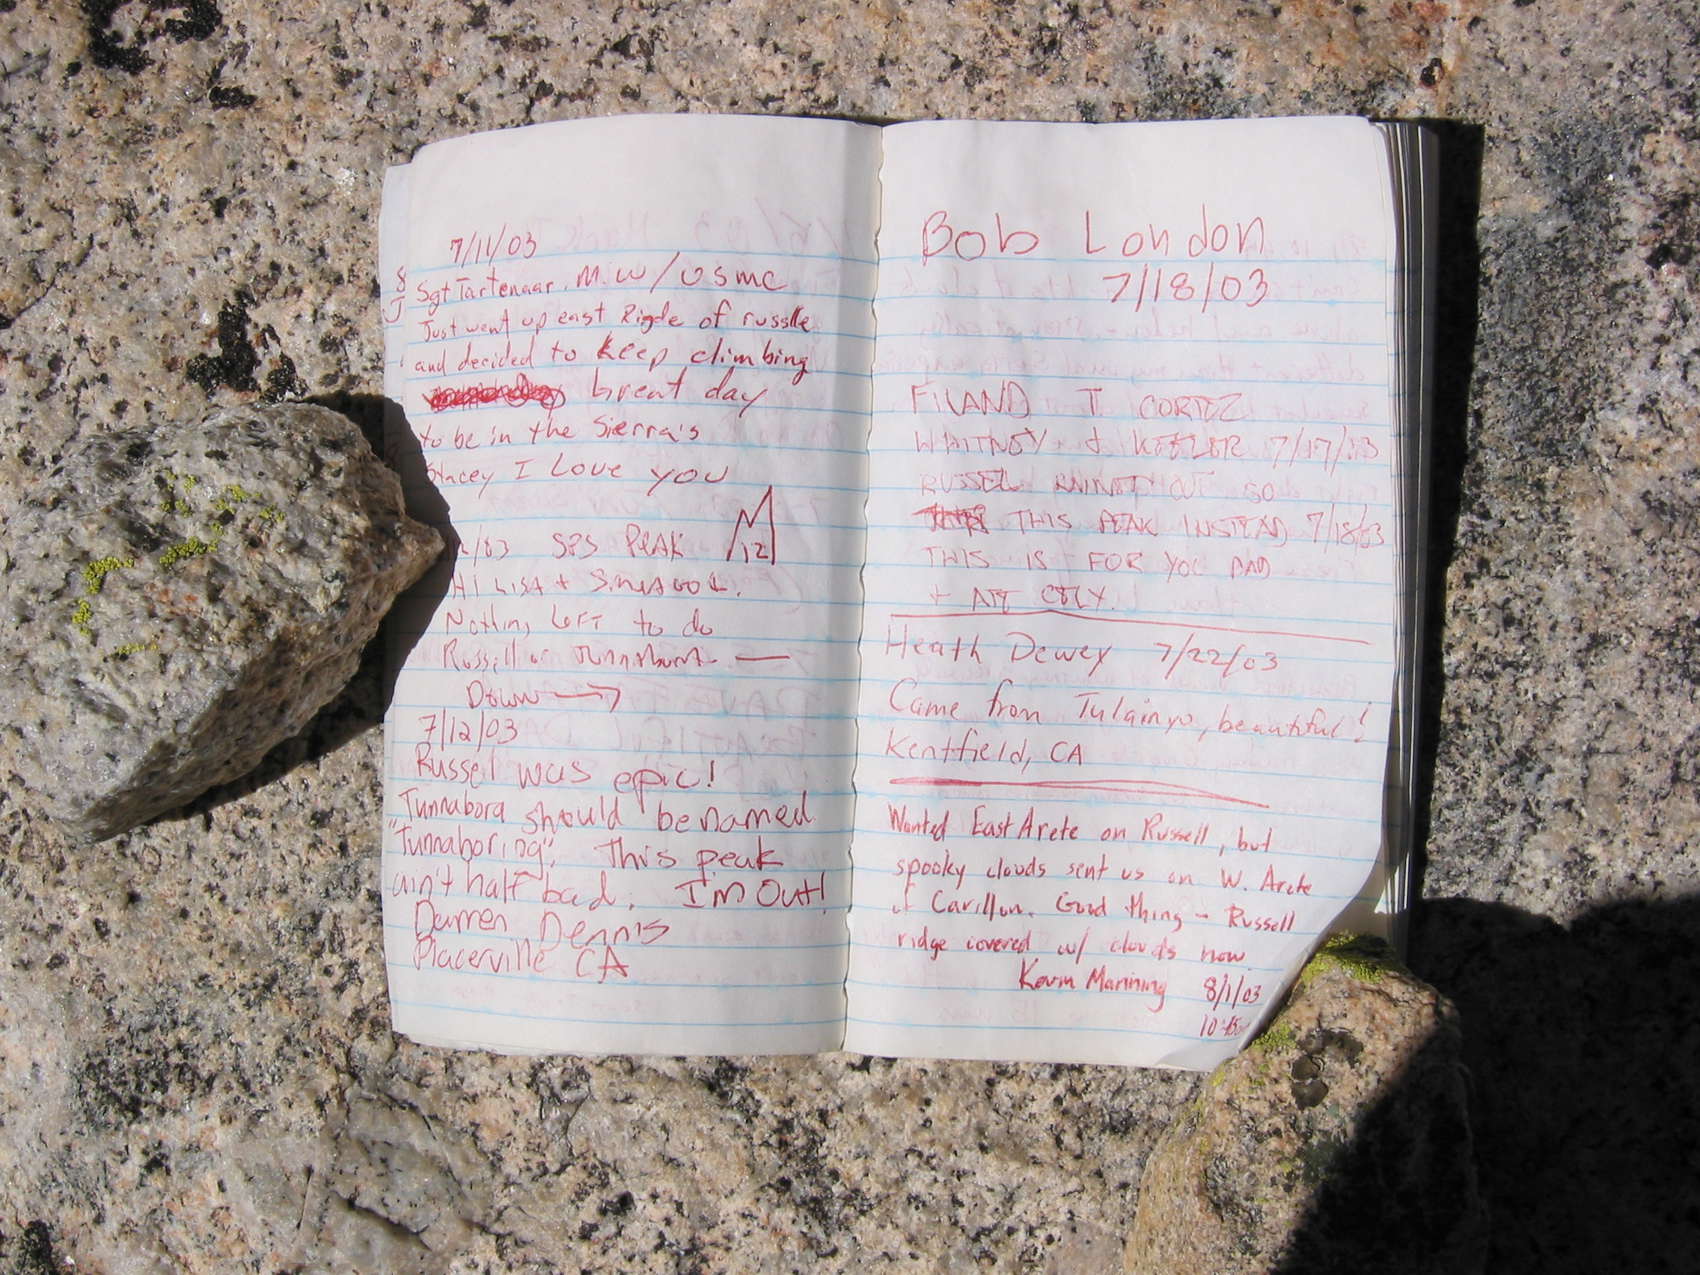 7/11/03
Sgt Tartenaar. M.W/USMC
Just went up east Rigde of russlle
and decided to keep climbing
Great day
to be in the Sierra's
Stacey I Love you
2/03 SPS PEAK 12
Hi LISA +
Nothing Left to do
Russell or
Down
7/12/03
Russell was epic!
Tunnabora should be named
"Tunnaboring". This peak
ain't half bad. I'm Out!
Darren Dennis
Placerville CA
Bob London
7/18/03
T CORTEZ
WHITNEY + KEELER 7/17/03
RUSSEL SO
THIS PEAK INSTEAD 7/18/03
THIS IS FOR YOU DAD
+
Heath Dewey 7/22/03
Came from Tulainyo, beautiful!
Kentfield, CA
Wanted East Arete on Russell, but
spooky clouds sent us on W. Arete
of Carillon. Good thing - Russell
ridge covered w/ clouds now
Kevin Manning 8/1/03
10:45